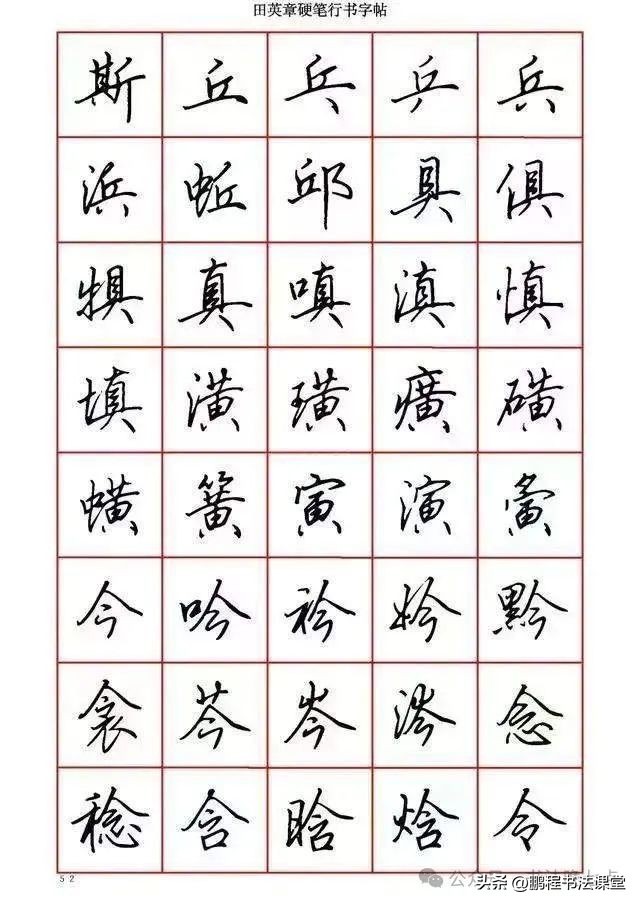 田英章硬笔行书字帖
斯 丘 乓 乒 兵
浜 蚯 邱 具 俱
犋 真 嗔 滇 慎
填 潢 璜 癀 磺
蟥 簧 寅 演 夤
今 吟 衿 妗 黔
衾 芩 岑 涔 念
稔 含 晗 焓 令
52
头条 @鹏程书法课堂